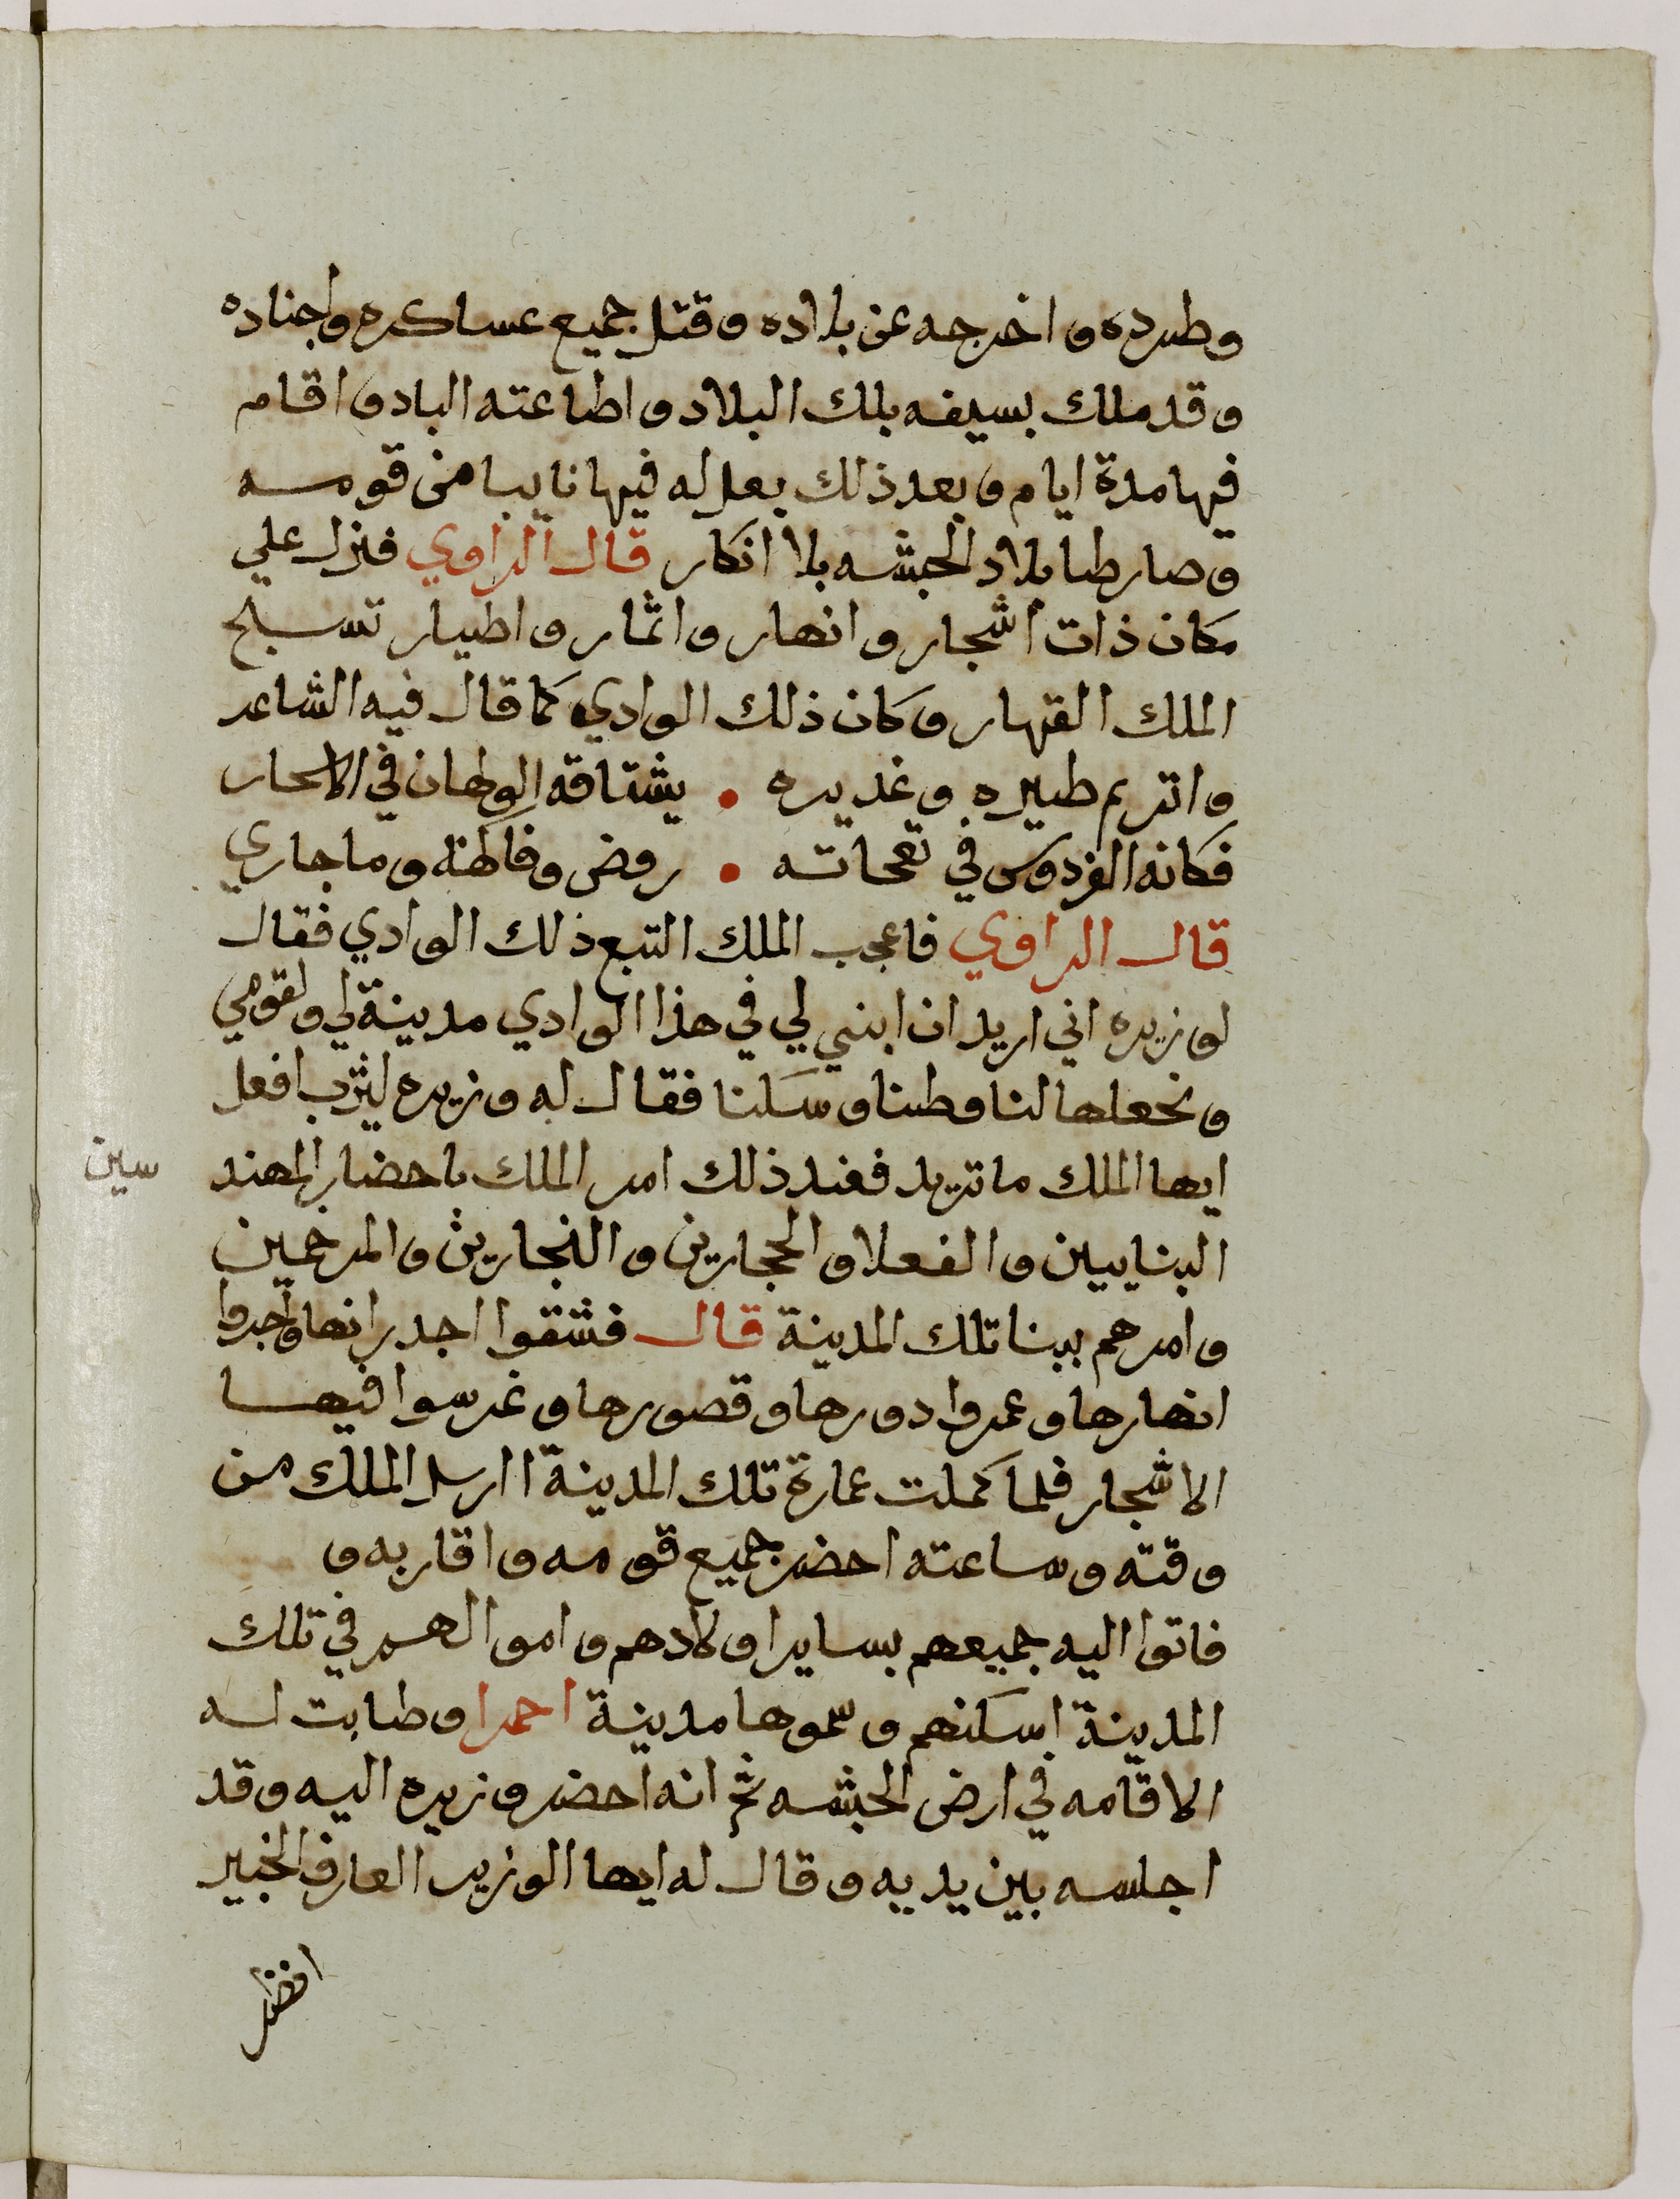 وطرده واخرجه عن بلاده وقتل جميع عساكره واجناده
وقد ملك بسيفه بلك البلاد واطاعته الباد واقام
فيها مدة ايام وبعد ذلك بعل له فيها نايبا من قومه
وصار طا بلاد الحبشه بلا انكار قال الراوي فنزل علي
مكان ذات اشجار وانهار واثمار واطيار تسبح
الملك القهار وكان ذلك الوادي كما قال فيه الشاعر
واتريم طيره وغديره • يشتاقه الولهان في الاسحار
فكانه الفردوس في نفحاته • روض وفاكهة وما جاري
قال الراوي فاعجب الملك التبع ذلك الوادي فقال
لوزيره اني اريد ان ابني لي في هذا الوادي مدينة لي ولقومي
ونجعلها لنا وطنا وسكنا فقال له وزيره يثرب افعل
ايها الملك ما تريد فعند ذلك امر الملك باحضار المهند
سين
البنايين والفعلا والحجارين والنجارين والمرخمين
وامرهم ببنا تلك المدينة قال فشقوا اجدرانها واجروا
انهارها وعمروا دورها وقصورها وغرسوا فيها
الاشجار فلما كملت عمارة تلك المدينة ارسل الملك من
وقته وساعته احضر جميع قومه واقاربه و
فاتوا اليه جميعهم بساير اولادهم واموالهم في تلك
المدينة اسكنهم وسموها مدينة احمرا وطابت له
الاقامه في ارض الحبشه ثم انه احضر وزيره اليه وقد
اجلسه بين يديه وقال له ايها الوزير العارف الخبير